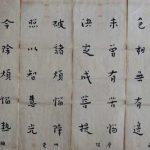 色相無有邊
未曾有
決定成菩提
破諸煩惱障
照以智慧光
令除煩惱熱